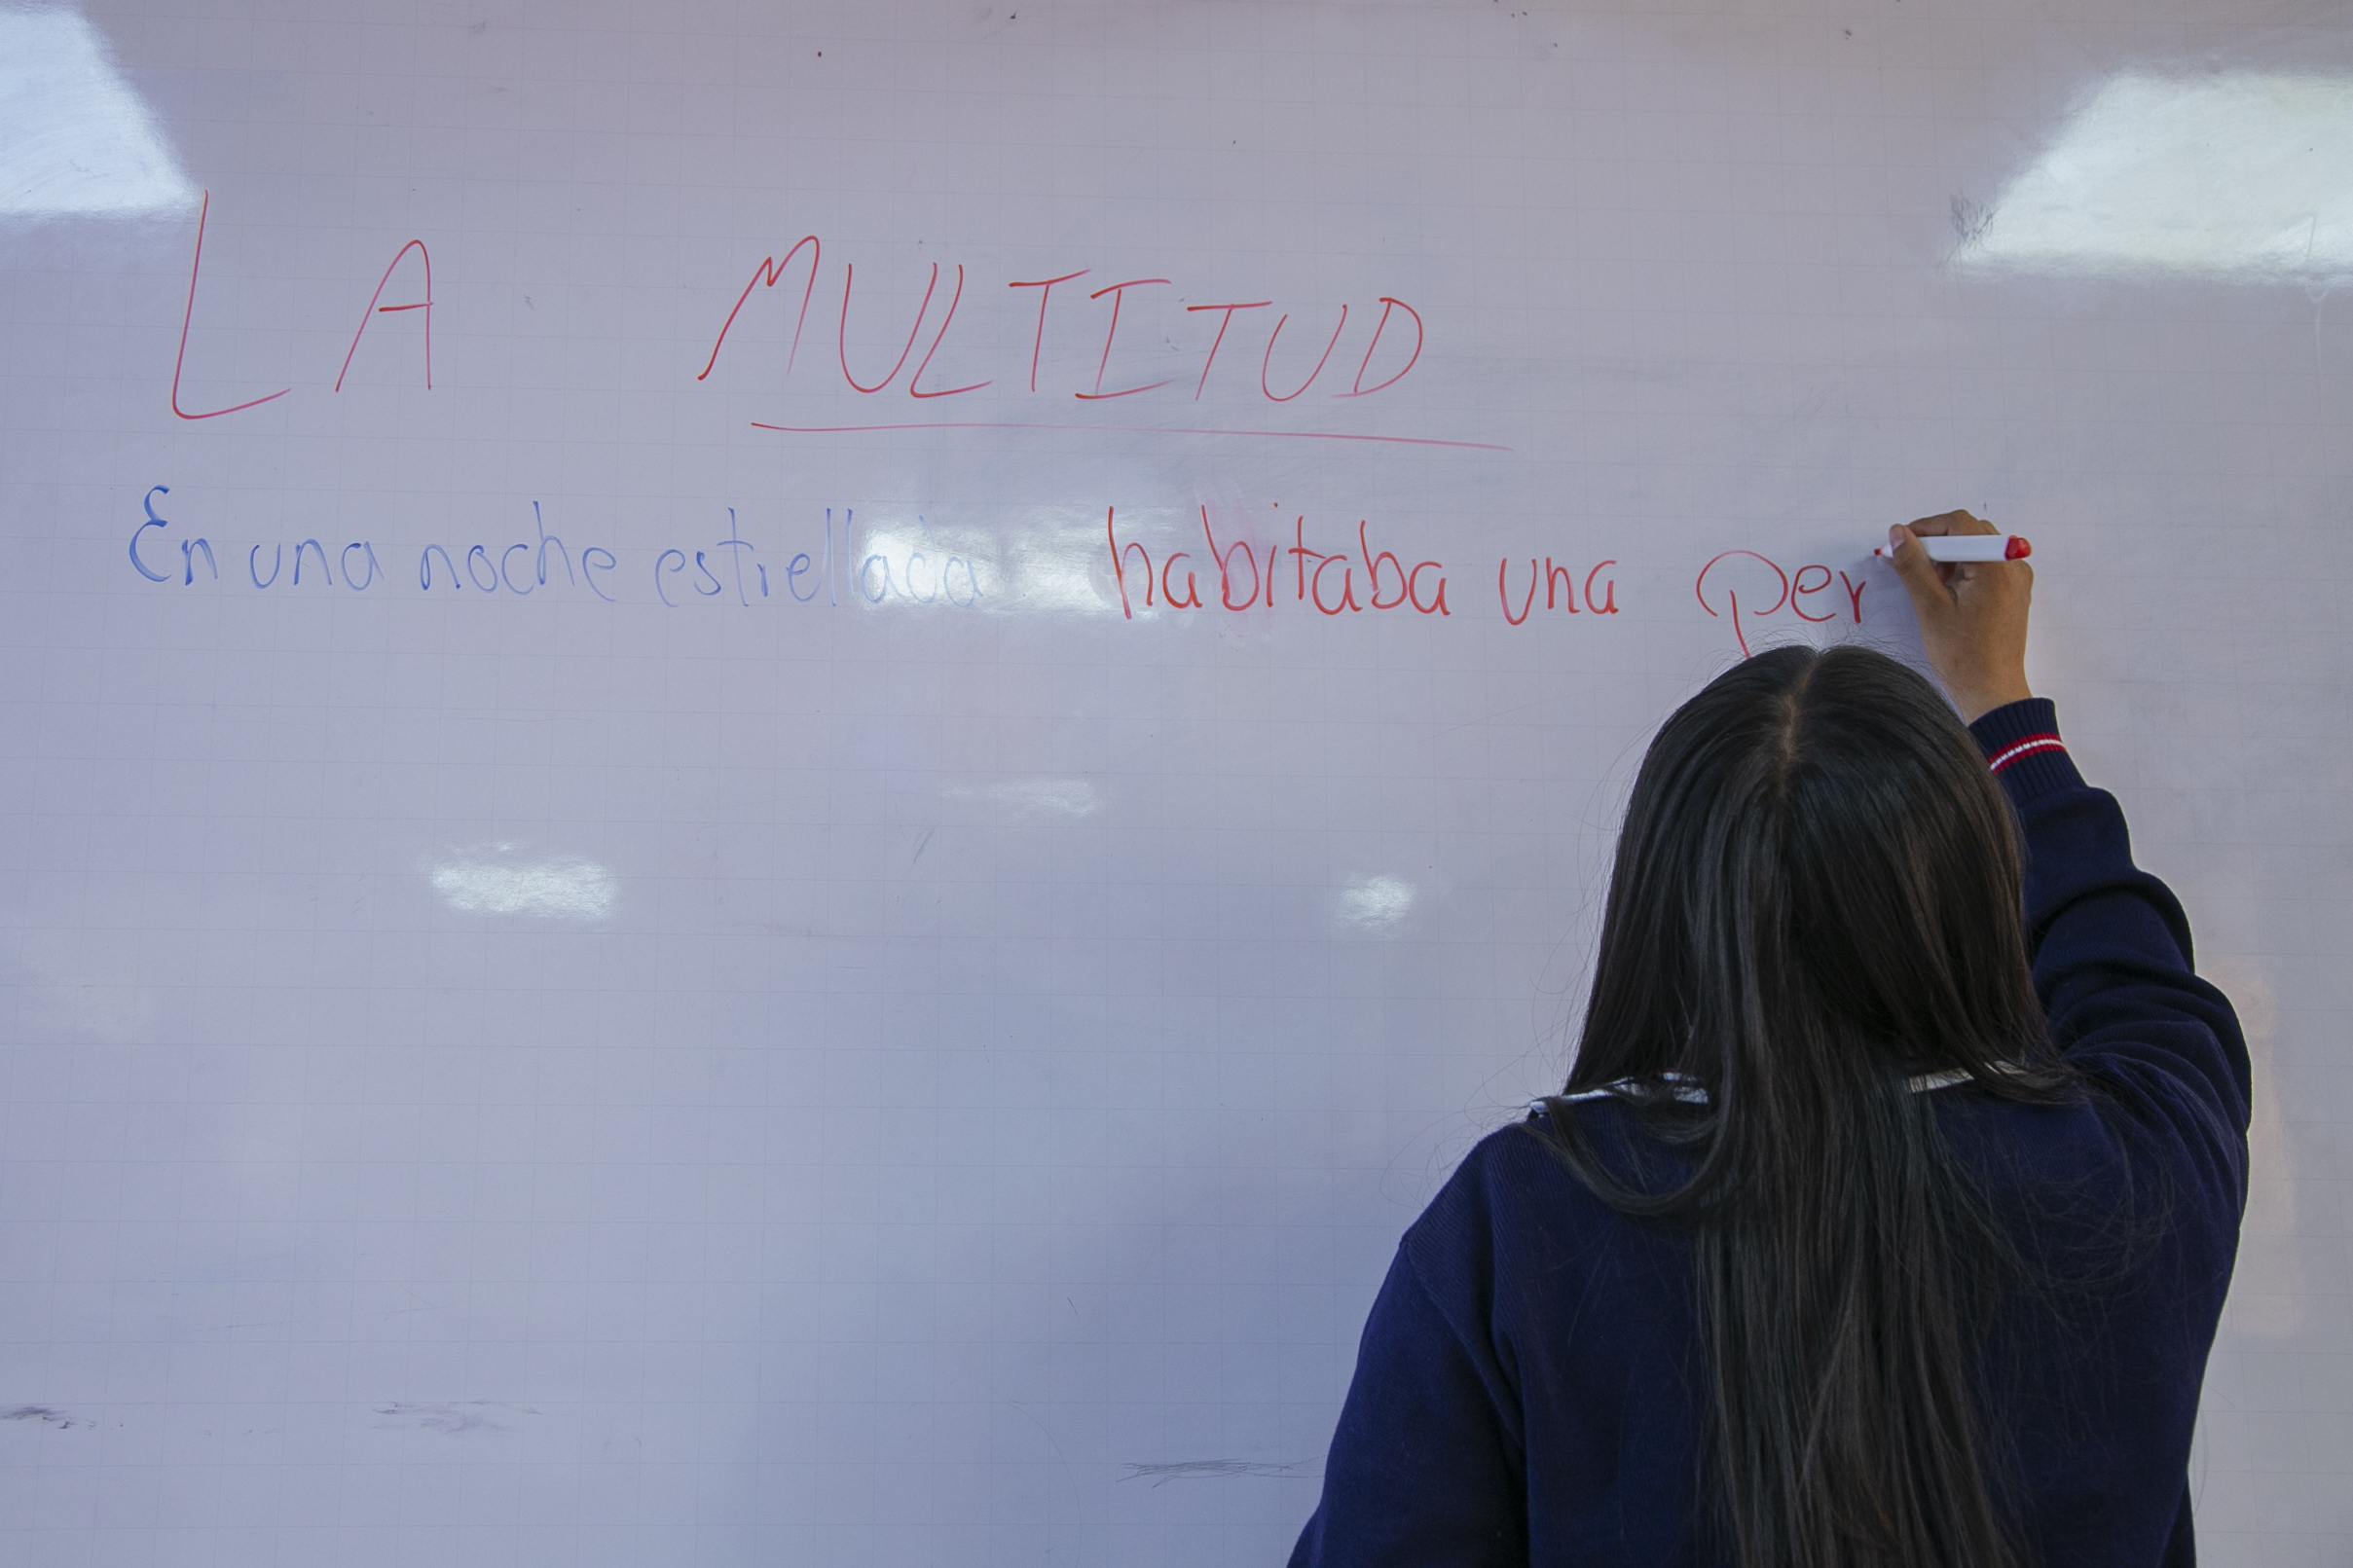 LA MULTITUD
En una noche estrellada habitaba una per